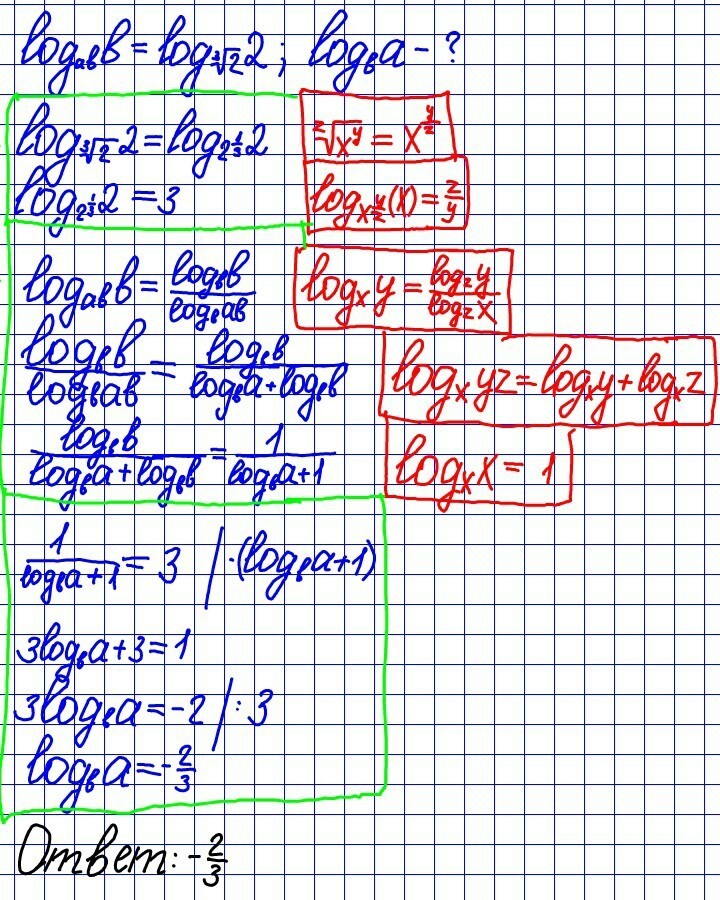 log_{ab} b = log_{∛2} 2 ; log_b a - ?
log_{∛2} 2 = log_{2^{1/3}} 2
ᶻ√(x^y) = x^{y/z}
log_{2^{1/3}} 2 = 3
log_{x^{y/z}} (x) = z/y
log_{ab} b = log_b b / log_b ab
log_x y = log_z y / log_z x
log_b b / log_b ab = log_b b / (log_b a + log_b b)
log_x yz = log_x y + log_x z
log_b b / (log_b a + log_b b) = 1 / (log_b a + 1)
log_x x = 1
1 / (log_b a + 1) = 3 | ·(log_b a + 1)
3 log_b a + 3 = 1
3 log_b a = -2 | : 3
log_b a = -2/3
Ответ: -2/3